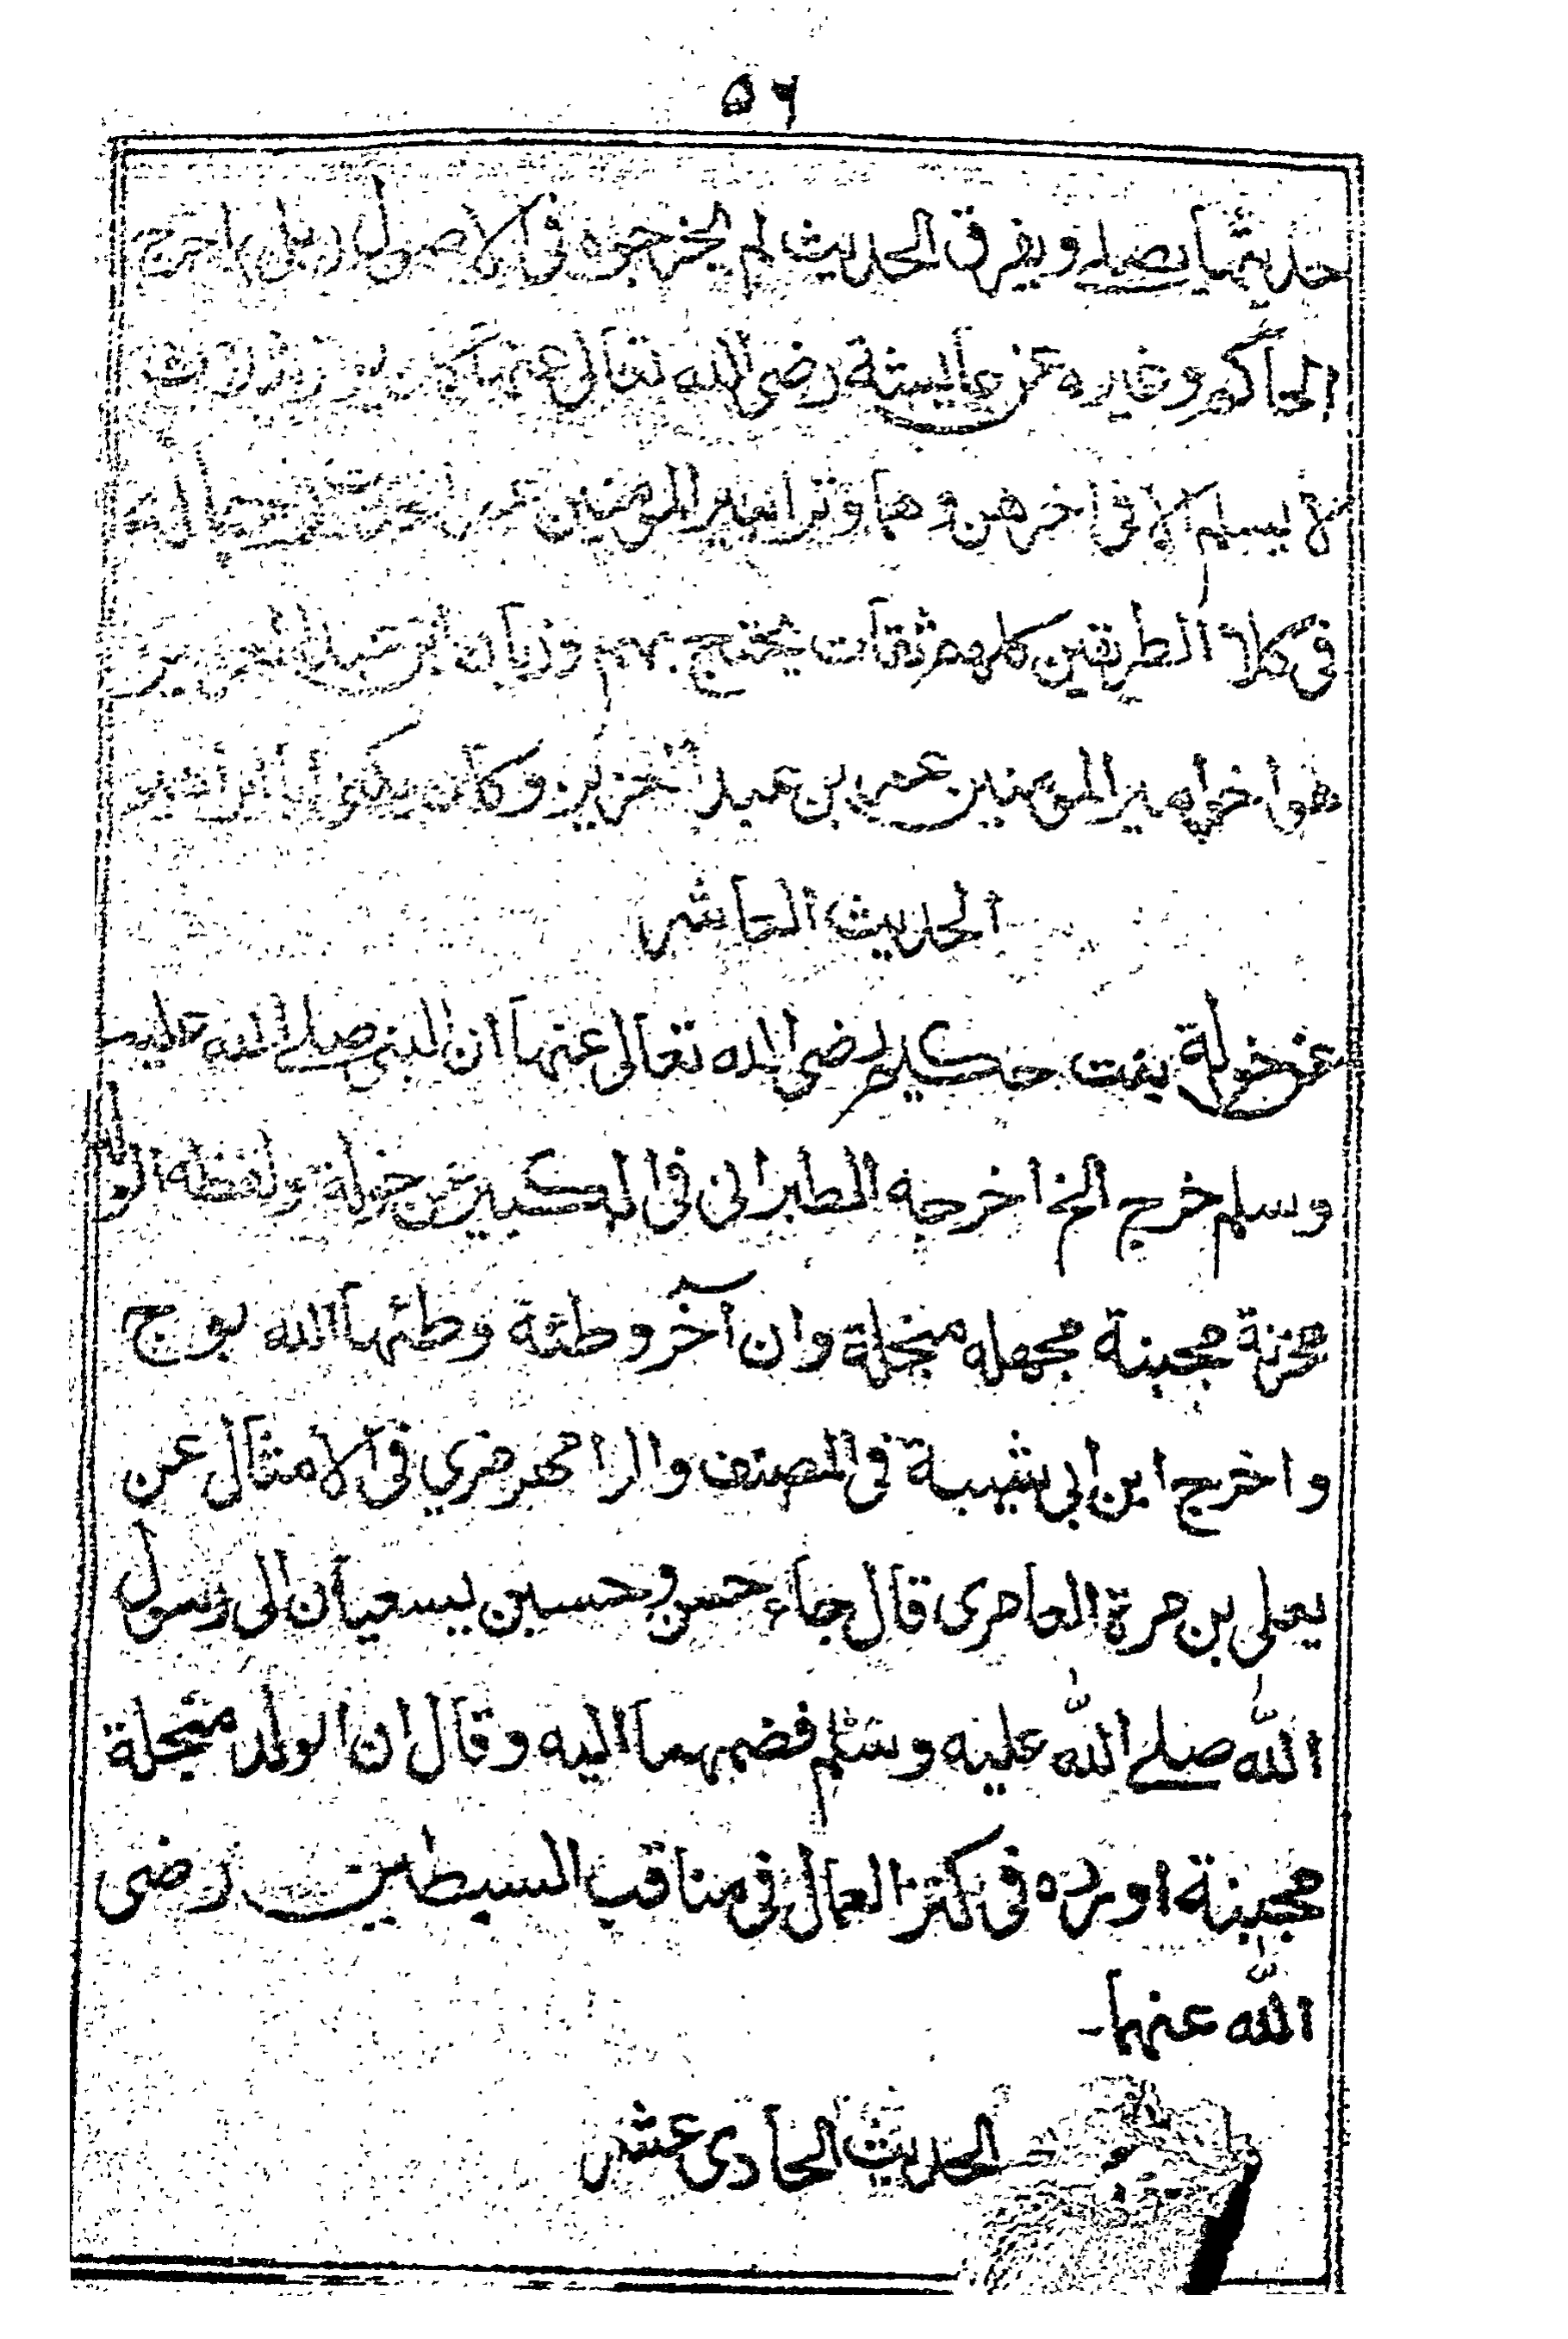 ۵۶
حديثها يصله ويفرق الحديث لم يخرجوه فى الاصول
الحاكم وغيره عن عايشة رضى الله تعالى عنها
لا يسلم الا فى اخرهن وهاوتر امير المومنين
فى كلا الطريقين كلهم ثقات يحتج بهم وزبان ابن عبد العزيز
هو اخو امير المومنين عمر بن عبد العزيز وكان يكنى ابا ابراهيم
الحديث العاشر
عن خولة بنت حكيم رضى الله تعالى عنها ان النبى صلے الله عليه
وسلم خرج الخ اخرجه الطبرانى فى الكبير عن خولة ولفظه الولد
محزنة مجبنة مجهله مبخلة وان آخر وطئة وطئها الله بوج
واخرج ابن ابى شيبة فى المصنف والرامهرمزي فى الامثال عن
يعلى بن مرة العامرى قال جاء حسن وحسين يسعيان الى رسول
الله صلے الله عليه وسلم فضمهما اليه وقال ان الولد مبخلة
مجبنة اورده فى كنز العمال فى مناقب السبطين رضى
الله عنهما-
الحديث الحادى عشر